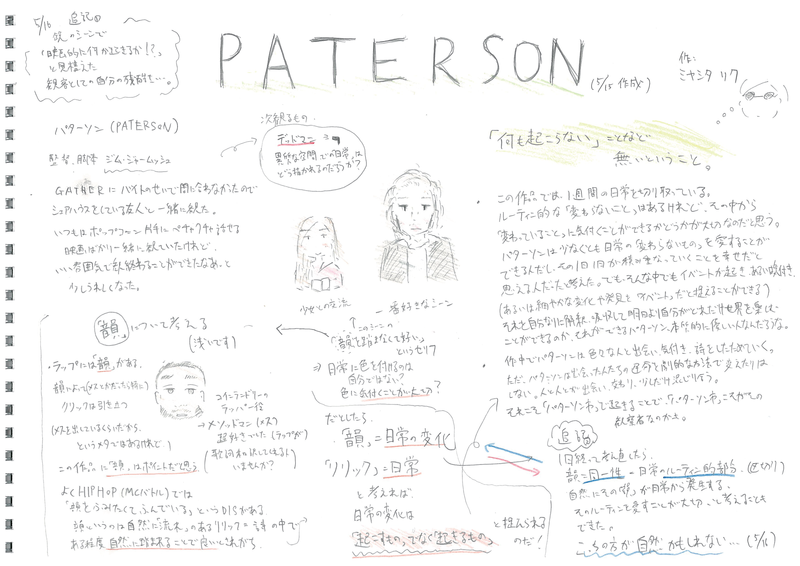 5/16 追記の
次のシーンで
「映画的に何か起きるか!?」
と見構えた
観客としての自分の残酷を…。
PATERSON
(5/15 作成)
作:
ミヤシタ リク
パターソン (PATERSON)
監督、脚本 ジム・ジャームッシュ
GATHERにバイトのせいで間に合わなかったので
シェアハウスをしている友人と一緒に観た。
いつもはポップコーン片手にペチャクチャ話せる
映画ばかり一緒に観ていたけれど、
いい雰囲気で観終わることができたなあ、と
少しうれしくなった。
次観るもの
デッドマン
異質な空間での日常は、
どう描かれるのだろうか?
「何も起こらない」ことなど
無いということ。
少女との交流
一番好きなシーン
↑このシーンの
「韻を踏まなくても好い」
というセリフ
⇒日常に色を付けるのは
自分ではない?
色に気付くことが大切?
「韻」について考える
(浅いです)
・ラップには「韻」がある。
クリックは引き立つ
というメタではあるけれど
この作品に「韻」はポイントだと思う。
コインランドリーの
ラッパー役
→メソッドマン
超好きでいた(ラップが)
いませんか?
よくHIPHOP (MCバトル)では
「韻をふみたくてふんでいる」というDISがある。
韻というのは自然に流れのあるリリック=詩の中で
ある程度自然に踏まれることで良いとされがち
だとしたら
「韻」=日常の変化
「リリック」=日常
と考えれば、
日常の変化は
「起こすもの」でなく「起きるもの」
と捉えられる
のだ!
・この作品では1週間の日常を切り取っている。
ルーティン的な「変わらないこと」はあるけれど、その中から
「変わっていること」に気付くことができるかどうかが大切なのだと思う。
パターソンは少なくとも日常の「変わらないもの」を愛することが
できる人だし、その1日1日が積み重なっていくことを幸せだと
思える人だったと考えた。でも、そんな中でもイベントが起き、
(あるいは細やかな変化や発見を「イベント」だと捉えることができる)
それを自分なりに解釈、吸収して明日より自分がとれだけ世界を愛す
ことができるのか、それができるパターソン、本質的に優しい人なんだろうな。
作中でパターソンは色々な人と出会い、気付き、詩をしたためていく。
ただ、パターソンは出会った人たちの運命を劇的な方法で変えたりは
しない。人と人とが出会い、交わり、少しだけ混じり合う。
それこそ「パターソン市」で起きることで、「パターソン市」こそが
追記
1日経って考え直したら、
韻=同一性=日常のルーティン的部分(区切り)
自然にその「韻」が日常から発生する。
そのルーティンを愛すことが大切、と考えることも
できた。
こっちの方が自然かもしれない… (5/16)